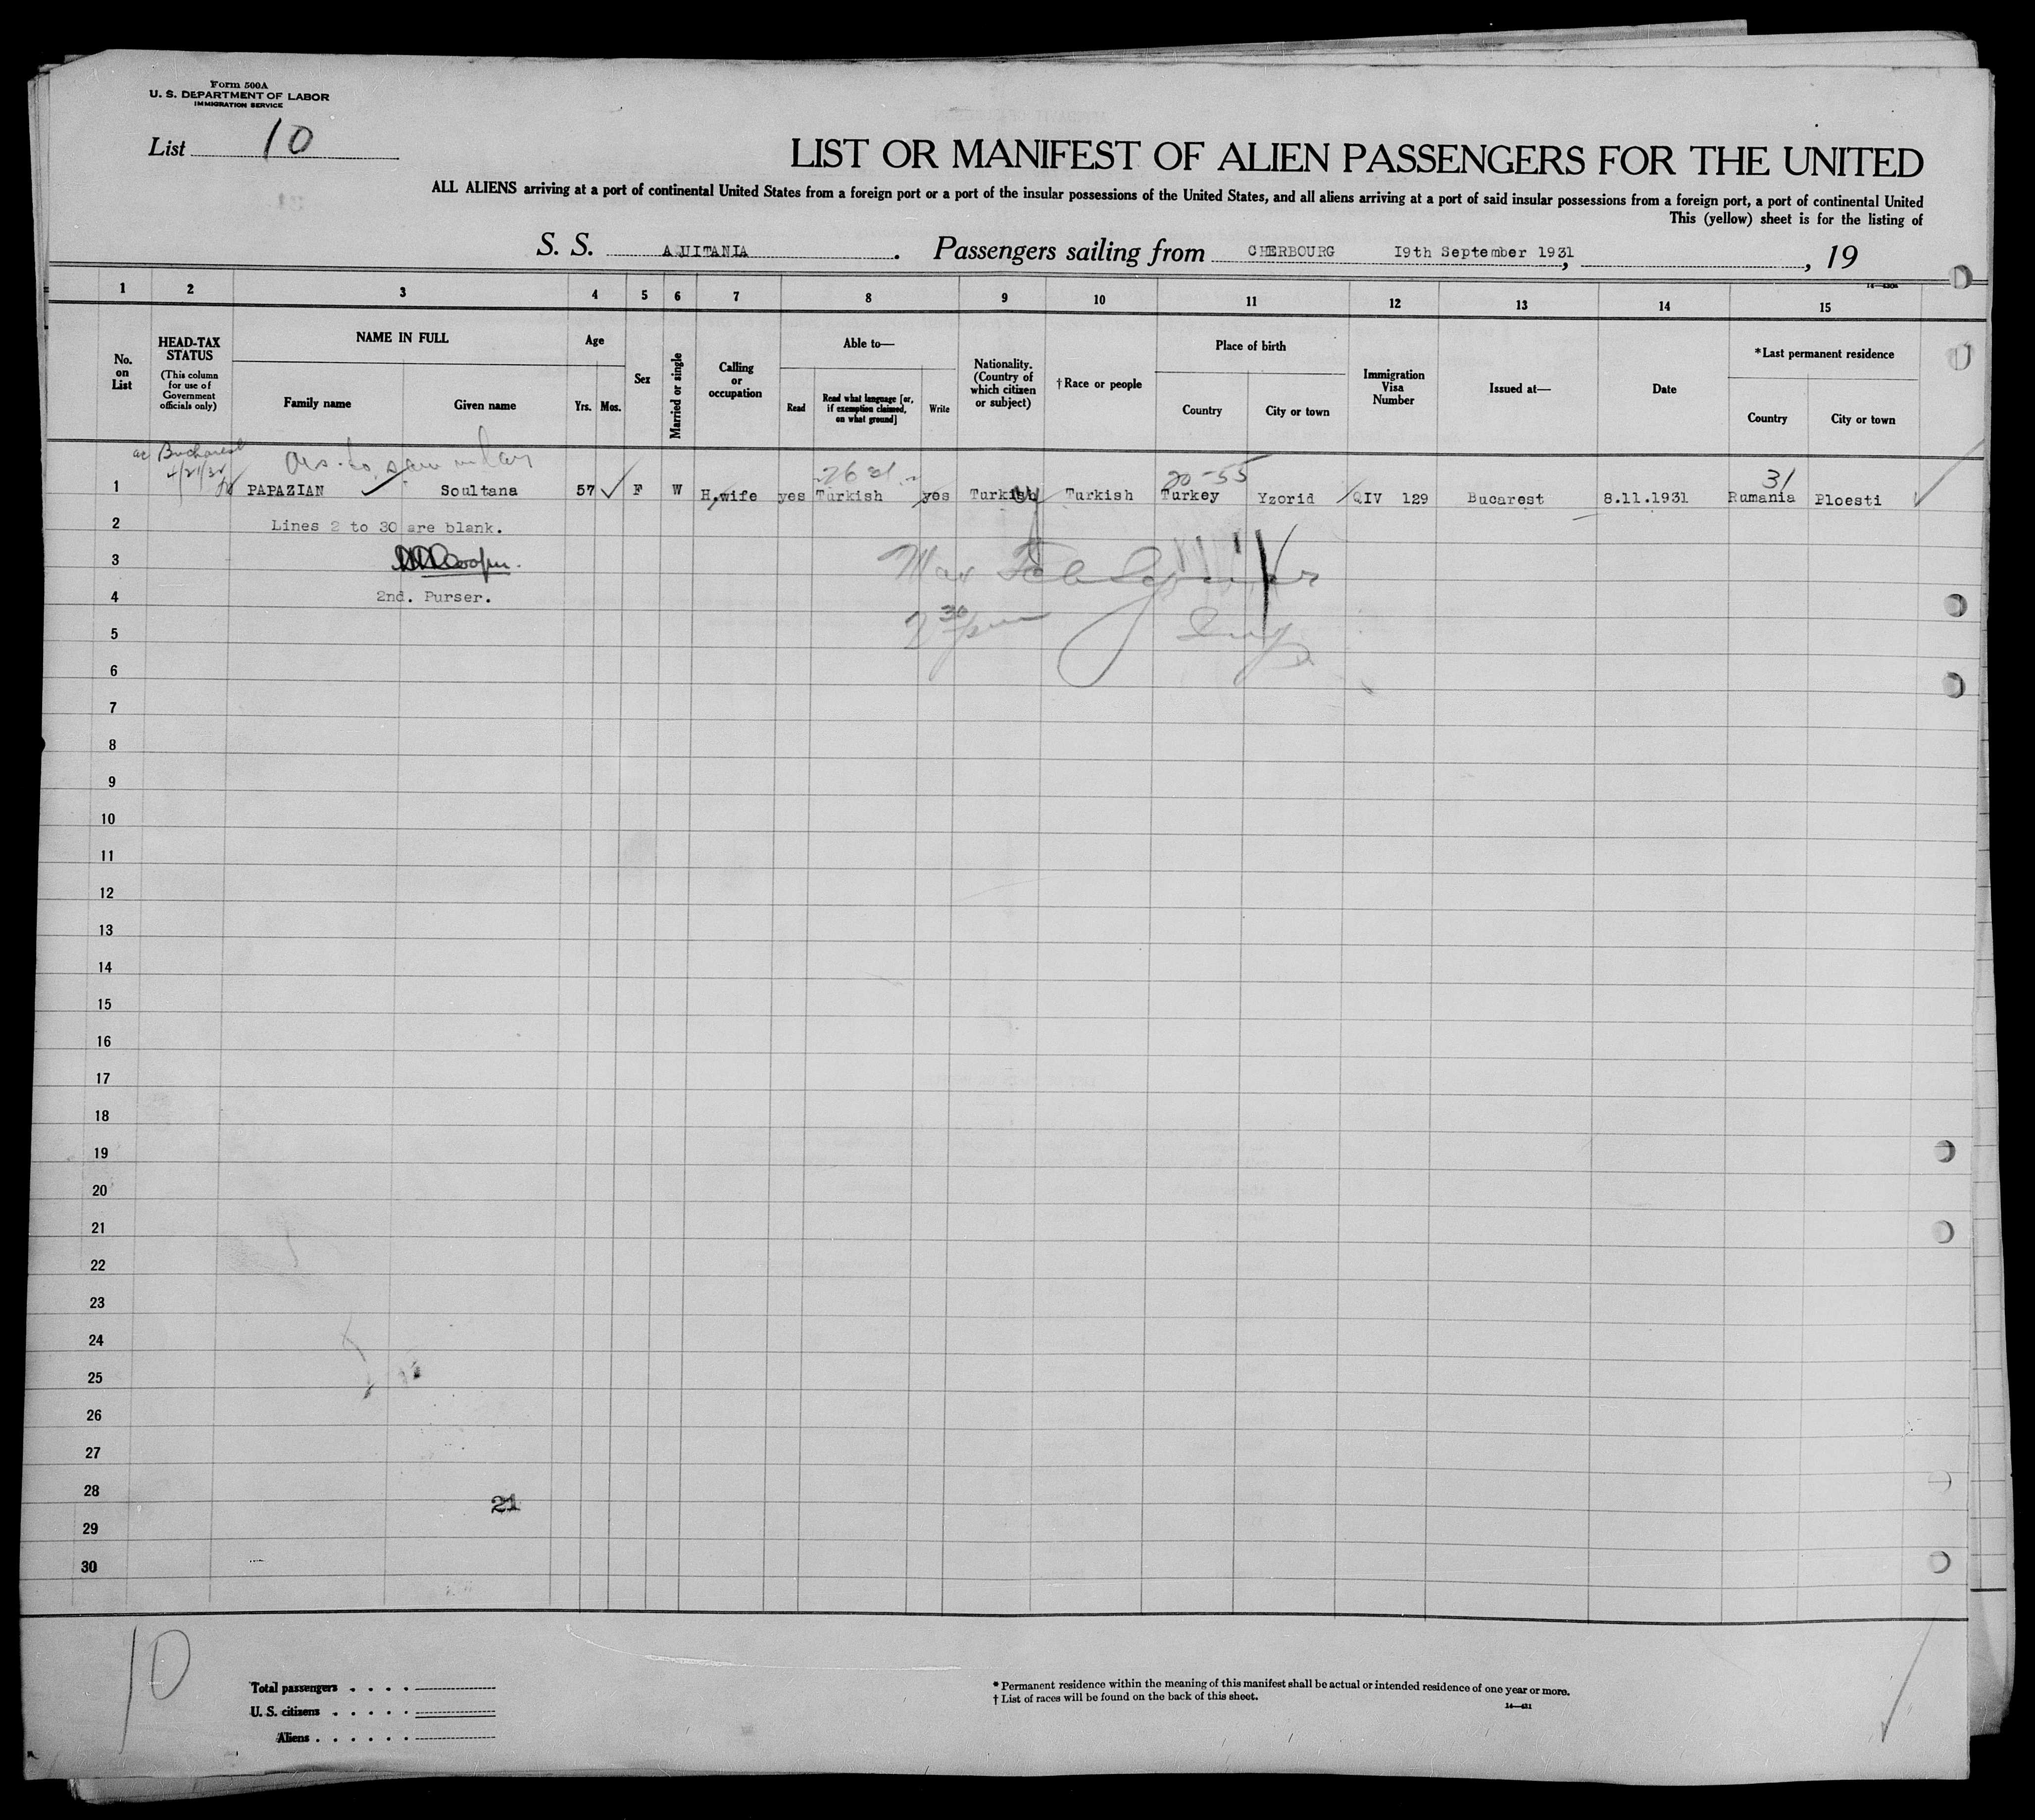 Form 500A
U. S. DEPARTMENT OF LABOR
IMMIGRATION SERVICE
List 10
LIST OR MANIFEST OF ALIEN PASSENGERS FOR THE UNITED
ALL ALIENS arriving at a port of continental United States from a foreign port or a port of the insular possessions of the United States, and all aliens arriving at a port of said insular possessions from a foreign port, a port of continental United
This (yellow) sheet is for the listing of
S. S. AQUITANIA. Passengers sailing from CHERBOURG 19th September 1931, , 19
1 2 3 4 5 6 7 8 9 10 11 12 13 14 15
No. on List
HEAD-TAX STATUS
(This column for use of Government officials only)
NAME IN FULL
Family name Given name
Age
Yrs. Mos.
Sex
Married or single
Calling or occupation
Able to—
Read
Read what language [or, if exemption claimed, on what ground]
Write
Nationality. (Country of which citizen or subject)
† Race or people
Place of birth
Country City or town
Immigration Visa Number
Issued at—
Date
*Last permanent residence
Country City or town
Bucharest
20-55 31
1 PAPAZIAN Soultana 57 F W H.wife yes Turkish yes Turkish Turkish Turkey Yzorid QIV 129 Bucarest 8.11.1931 Rumania Ploesti
2 Lines 2 to 30 are blank.
3 Cooper.
4 2nd. Purser.
2 30 pm
5
6
7
8
9
10
11
12
13
14
15
16
17
18
19
20
21
22
23
24
25
26
27
28
21
29
30
10
Total passengers
U. S. citizens
Aliens
* Permanent residence within the meaning of this manifest shall be actual or intended residence of one year or more.
† List of races will be found on the back of this sheet.
14—431